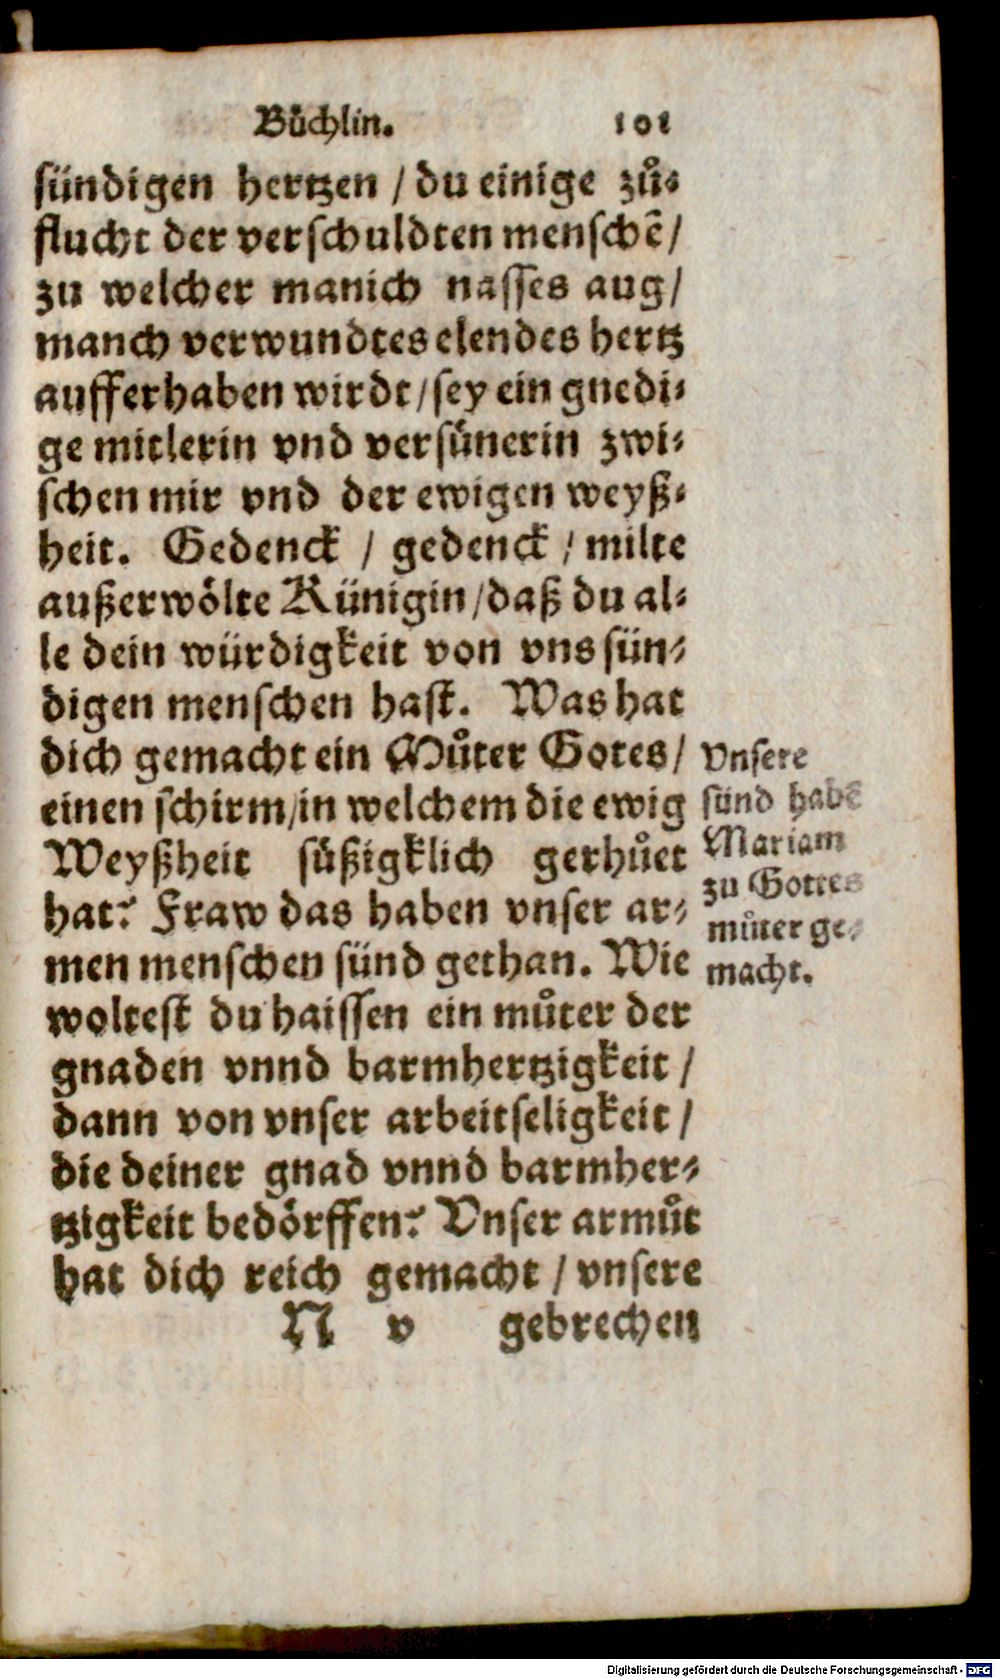 Bůchlin. 101
sündigen hertzen / du einige zů-
flucht der verschuldten menschē /
zu welcher manich nasses aug /
manch verwundtes elendes hertz
aufferhaben wirdt / sey ein gnedi-
ge mitlerin vnd versünerin zwi-
schen mir vnd der ewigen weyß-
heit. Gedenck / gedenck / milte
außerwölte Künigin / daß du al-
le dein würdigkeit von vns sün-
digen menschen hast. Was hat
dich gemacht ein Můter Gotes /
einen schirm / in welchem die ewig
Weyßheit süßigklich gerhůet
hat? Fraw das haben vnser ar-
men menschen sünd gethan. Wie
woltest du haissen ein můter der
gnaden vnnd barmhertzigkeit /
dann von vnser arbeitseligkeit /
die deiner gnad vnnd barmher-
tzigkeit bedörffen? Vnser armůt
hat dich reich gemacht / vnsere
N v gebrechen
Vnsere
sünd habē
Mariam
zu Gottes
můter ge-
macht.
Digitalisierung gefördert durch die Deutsche Forschungsgemeinschaft - DFG